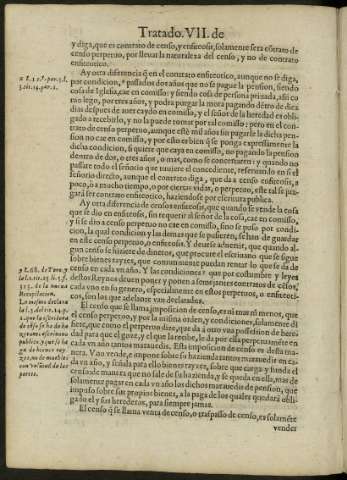 Tratado. VII. de
y diga, que es contrato de censo, y enfiteosis, solamente sera cõtrato de
censo perpetuo, por lleuar la naturaleza del censo, y no de contrato
enfiteotico.
Ay otra diferencia q̃ en el contrato enfiteotico, aunque no se diga,
por condicion, passados dos años que no se pague la pension, siendo
cosa de Iglesia, cae en comisso: y siendo cosa de persona priuada, assi co
mo lego, por tres años, y podra purgar la mora pagando dẽtro de diez
dias despues de auer caydo en comisso, y el señor de la heredad es obli-
gado a recebirlo, y no la puede tomar por tal comisso: pero en el con-
trato de censo perpetuo, aunque estè mil años sin pagarse la dicha pen-
sion no cae en comisso, y por esso es bien q̃ se ponga expressamente la
dicha condicion, si quiere que cayga en comisso, no pagando la pension
dentro de dos, o tres años, o mas, como se concertaren: y quando no
passare todo el señorio que tuuiere el concediente, reseruando en si el
señorio directo, aunque el contrato diga, que da a censo enfiteosis, a
poco, ò a mucho tiempo, o por ciertas vidas, o perpetuo, este tal se juz-
gará ser contrato enfiteotico, haziendose por escritura publica.
Ay otra diferencia de censo enfiteosis, que quando se vende la cosa
que se dio en enfiteosis, sin requerir al señor de la cosa, cae en comisso,
y si se dio a censo perpetuo no cae en comisso, sino se puso por condi-
cion, la qual condicion y las demas que se pusieren, se han de guardar
en esse censo perpetuo, o enfiteosis. Y deuese aduertir, que quando al-
gun censo se hiziere de dineros, que procure el escriuano que se sigue
sobre bienes rayzes, que comunmente puedan rentar lo que se da de
censo en cada vn año. Y las condiciones que por costumbre y leyes
destos Reynos deuen poner y ponen a semejantes contratos de censos,
cada vno en su genero, especialmente en estos perpetuos, o enfiteoti-
cos, son las que adelante van declaradas.
El censo que se llama imposicion de censo, es ni mas ni menos, que
el censo perpetuo, y por la misma orden, y condiciones, solamente di
fiere, que como el perpetuo dize, que dà a otro vna possession de hereda
dad para que el goze, y el que la recibe, le da por ella perpetuamẽte en
cada vn año tantos marauedis. Esta imposicion de censo es desta ma-
nera. Vno vende, e impone sobre su hazienda tantos marauedis en ca-
da vn año, y señala para ello bienes rayzes, sobre que carga y funda el
censo de manera que no sale de su hazienda, y se queda en ella, mas de
solamente pagar en cada vn año los dichos marauedis de pension, que
impuso sobre sus propios bienes, a la paga de los quales quedará obli-
gado el y sus herederos, para siempre jamas.
El censo q̃ se llama venta de censo, o traspasso de censo, es solamẽte
vender